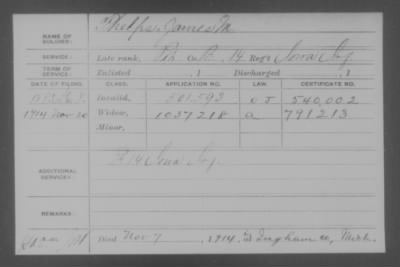 NAME OF SOLDIER: Phelps, James M.
SERVICE: Late rank, Co. 14 Reg't Iowa Inf.
TERM OF SERVICE: Enlisted , 1 Discharged , 1
DATE OF FILING. CLASS. APPLICATION NO. LAW. CERTIFICATE NO.
Invalid, 561,593 540,002
1914 Nov 20 Widow, 1037218 a 791213
Minor,
ADDITIONAL SERVICE: 14 Iowa Inf.
REMARKS:
Died Nov 7, 1914, at Ingham co, Mich.